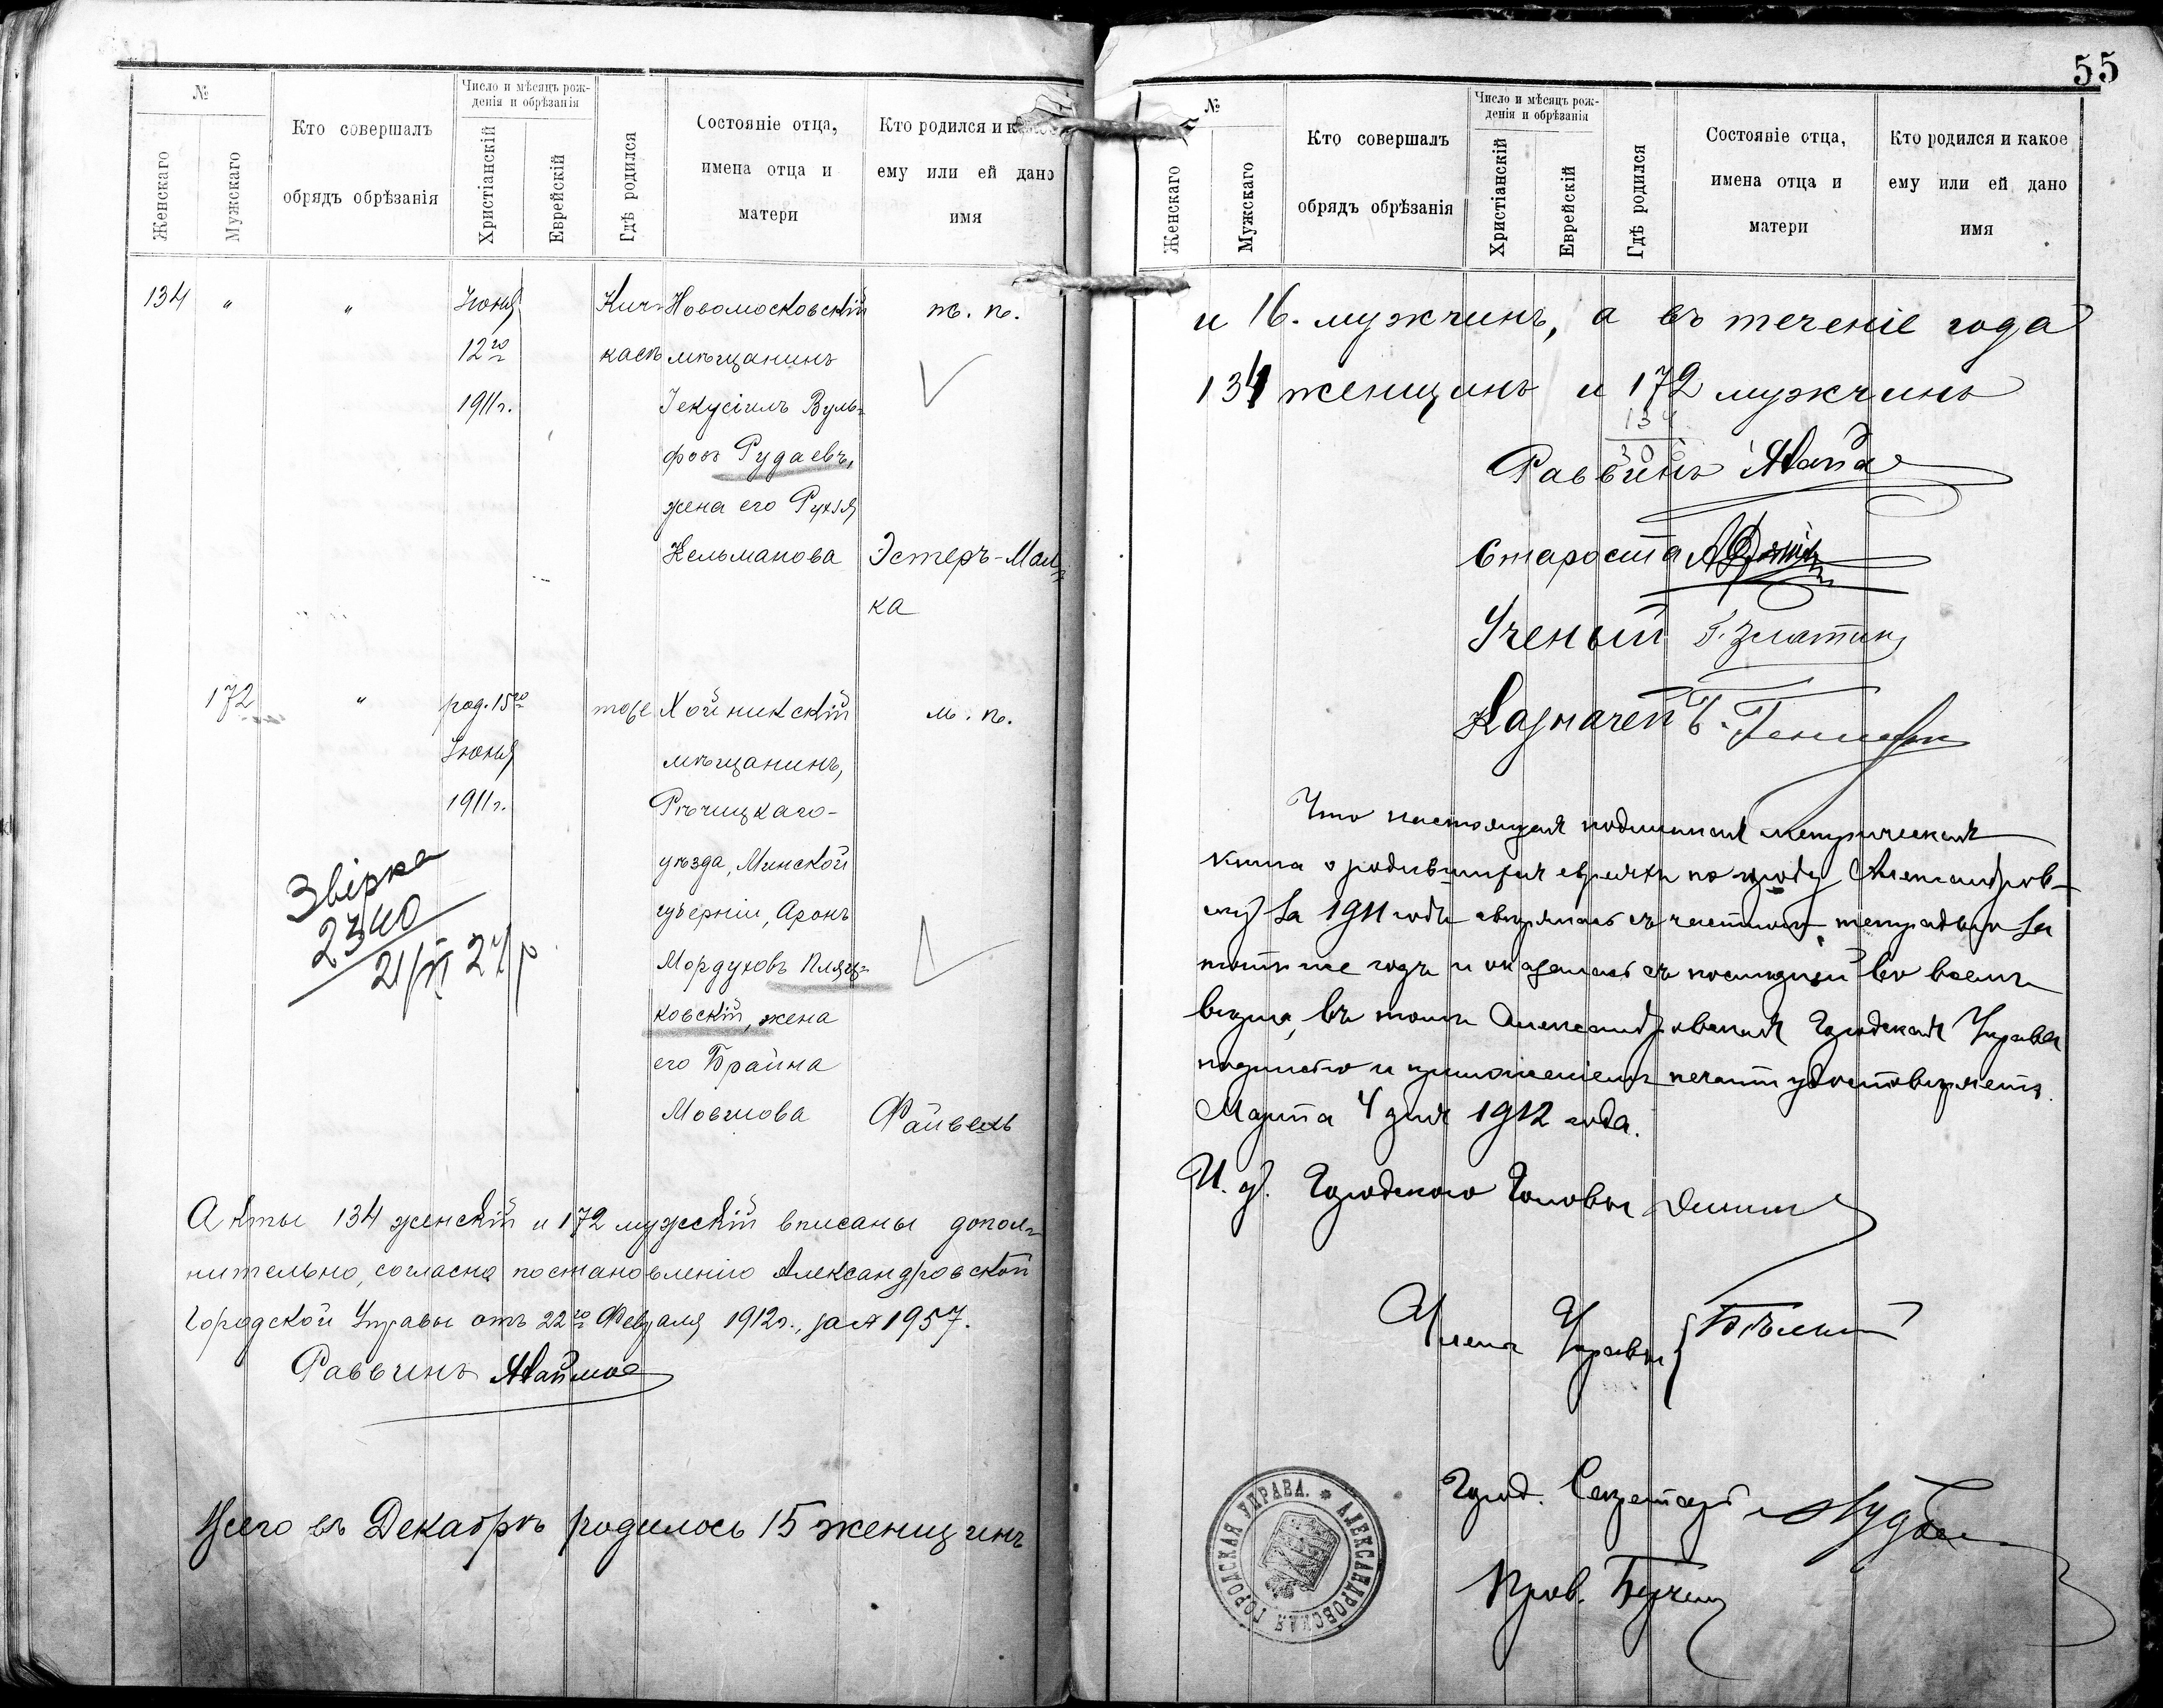 №
Женскаго
Мужскаго
Кто совершалъ
обрядъ обрѣзанія
Число и мѣсяцъ рож-
денія и обрѣзанія
Христіанскій
Еврейскій
Гдѣ родился
Состояніе отца,
имена отца и
матери
Кто родился и какое
ему или ей дано
имя
134 " " Іюня Кич- Новомосковскій ж. п.
12го касъ мѣщанинъ
1911г. Іекусіилъ Вуль-
фовъ Рудаевъ,
жена его Рухля
Кельманова Эстеръ-Мал-
ка
172 " род. 15го тоже Хойникскій м. п.
Іюня мѣщанинъ,
1911г. Рѣчицкаго
уѣзда, Минской
губерніи, Аронъ
Мордуховъ Пляц-
ковскій, жена
его Брайна
Мовшова Файвель
Звірка
2340
21/VI 27р
Акты 134 женскій и 172 мужскій вписаны допол-
нительно, согласно постановленію Александровской
Городской Управы отъ 22го Февраля 1912г., за № 1957.
Раввинъ
Всего въ Декабрѣ родилось 15 женщинъ
55
№
Женскаго
Мужскаго
Кто совершалъ
обрядъ обрѣзанія
Число и мѣсяцъ рож-
денія и обрѣзанія
Христіанскій
Еврейскій
Гдѣ родился
Состояніе отца,
имена отца и
матери
Кто родился и какое
ему или ей дано
имя
и 16. мужчинъ, а въ теченіе года
134 женщинъ и 172 мужчинъ
134
306
Раввинъ
Староста
Ученый Г. Златкин
Казначей
Что настоящая подлинная метрическая
книга о родившихся евреяхъ по городу Александров-
ску за 1911 годъ свѣрялась съ чистою тетрадью за
тотъ же годъ и оказалась съ послѣдней во всемъ
вѣрна, въ томъ Александровская Городская Управа
подписью и приложеніемъ печати удостовѣряетъ.
Марта 4 дня 1912 года.
И. д. Городского Головы
Члены Управы Бѣлый
Город. Секретарь
Пров.
АЛЕКСАНДРОВСКАЯ ГОРОДСКАЯ УПРАВА.